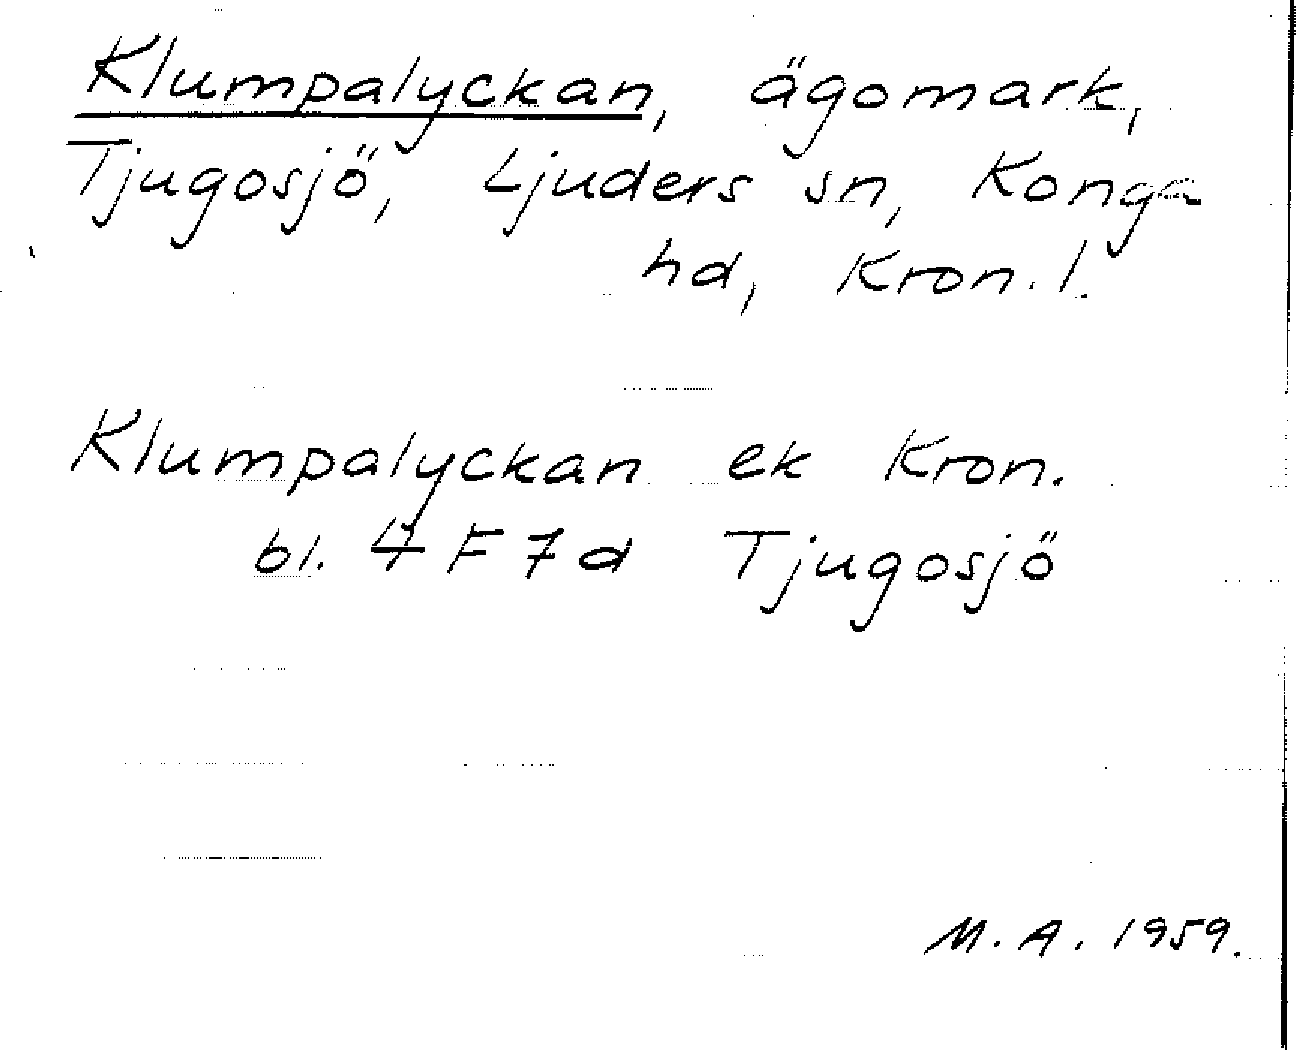 Klumpalyckan, ägomark,
Tjugosjö, Ljuders sn, Konga
hd, Kron. l.
Klumpalyckan ek Kron.
bl. 4 F 7 d Tjugosjö
M. A. 1959.